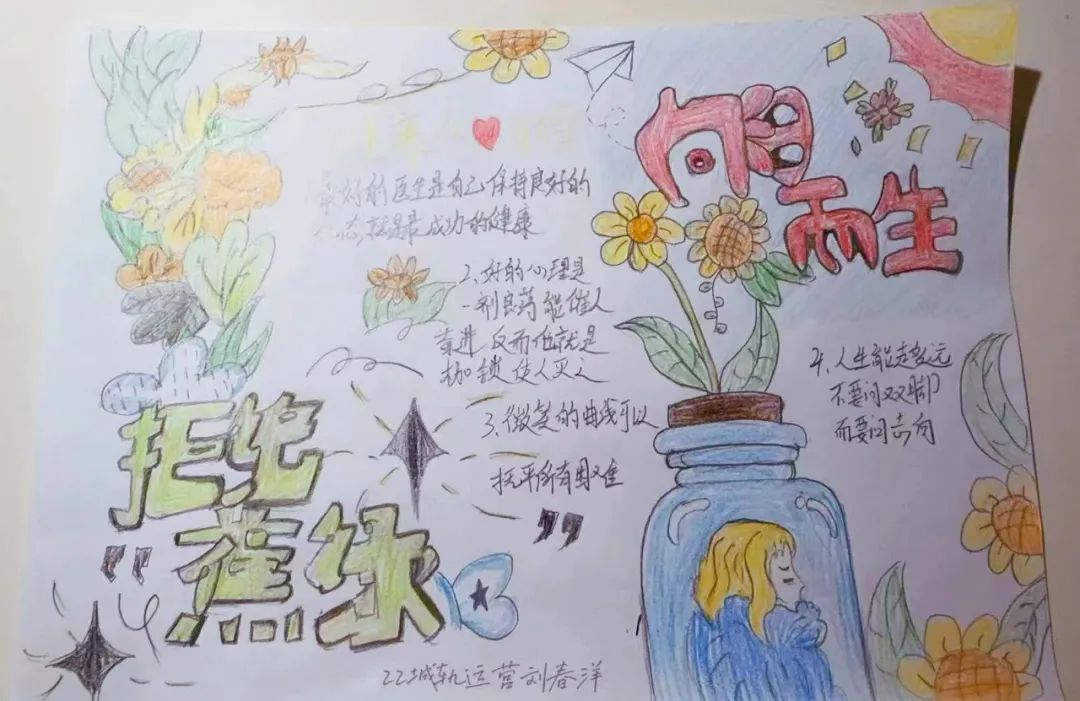 向阳
而生
最好的医生是自己保持良好的
态就是最成功的健康
2、好的心理是
一剂良药能催人
奋进 反而他就是
枷锁 使人灭亡
3、微笑的曲线可以
抚平所有困难
4、人生能走多远
不要问双脚
而要问志向
拒绝
“蕉绿”
22城轨运营刘春洋